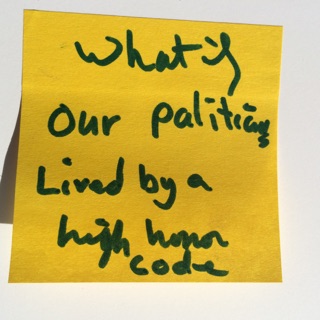 What if
our palitians
Lived by a
high honor
code